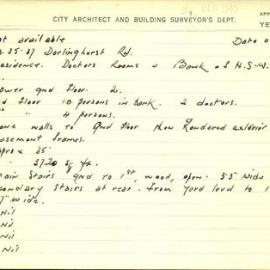 CITY ARCHITECT AND BUILDING SURVEYOR'S DEPT.
YE
ot available Date o
25-27 Darlinghurst Rd.
esidence. Doctors Rooms & Bank of N.S.W.
ower Gnd Floor. 2.
nd Floor 10 persons in bank. 2 doctors.
" 4 persons.
one walls to Gnd floor then Rendered exterior
asement frames.
pprox 35'
3720 sq ft.
ain Stairs Gnd to 1st, wood, open. 3'5" wide
condary Stairs at rear from yard level to 1
wide.
Nil
Nil
Nil
Nil